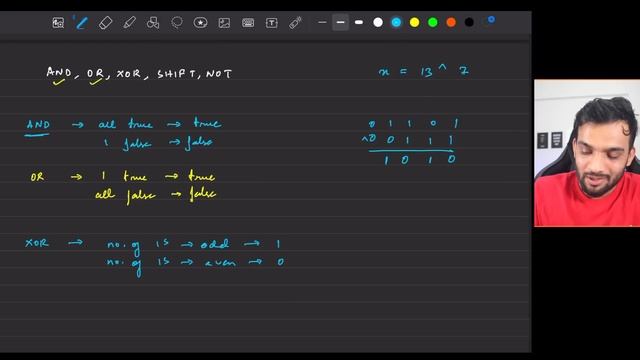 AND, OR, XOR, SHIFT, NOT
x = 13 ^ 7
AND → all true → true
1 false → false
0 1 1 0 1
^0 0 1 1 1
1 0 1 0
OR → 1 true → true
all false → false
XOR → no. of 1s → odd → 1
no. of 1s → even → 0